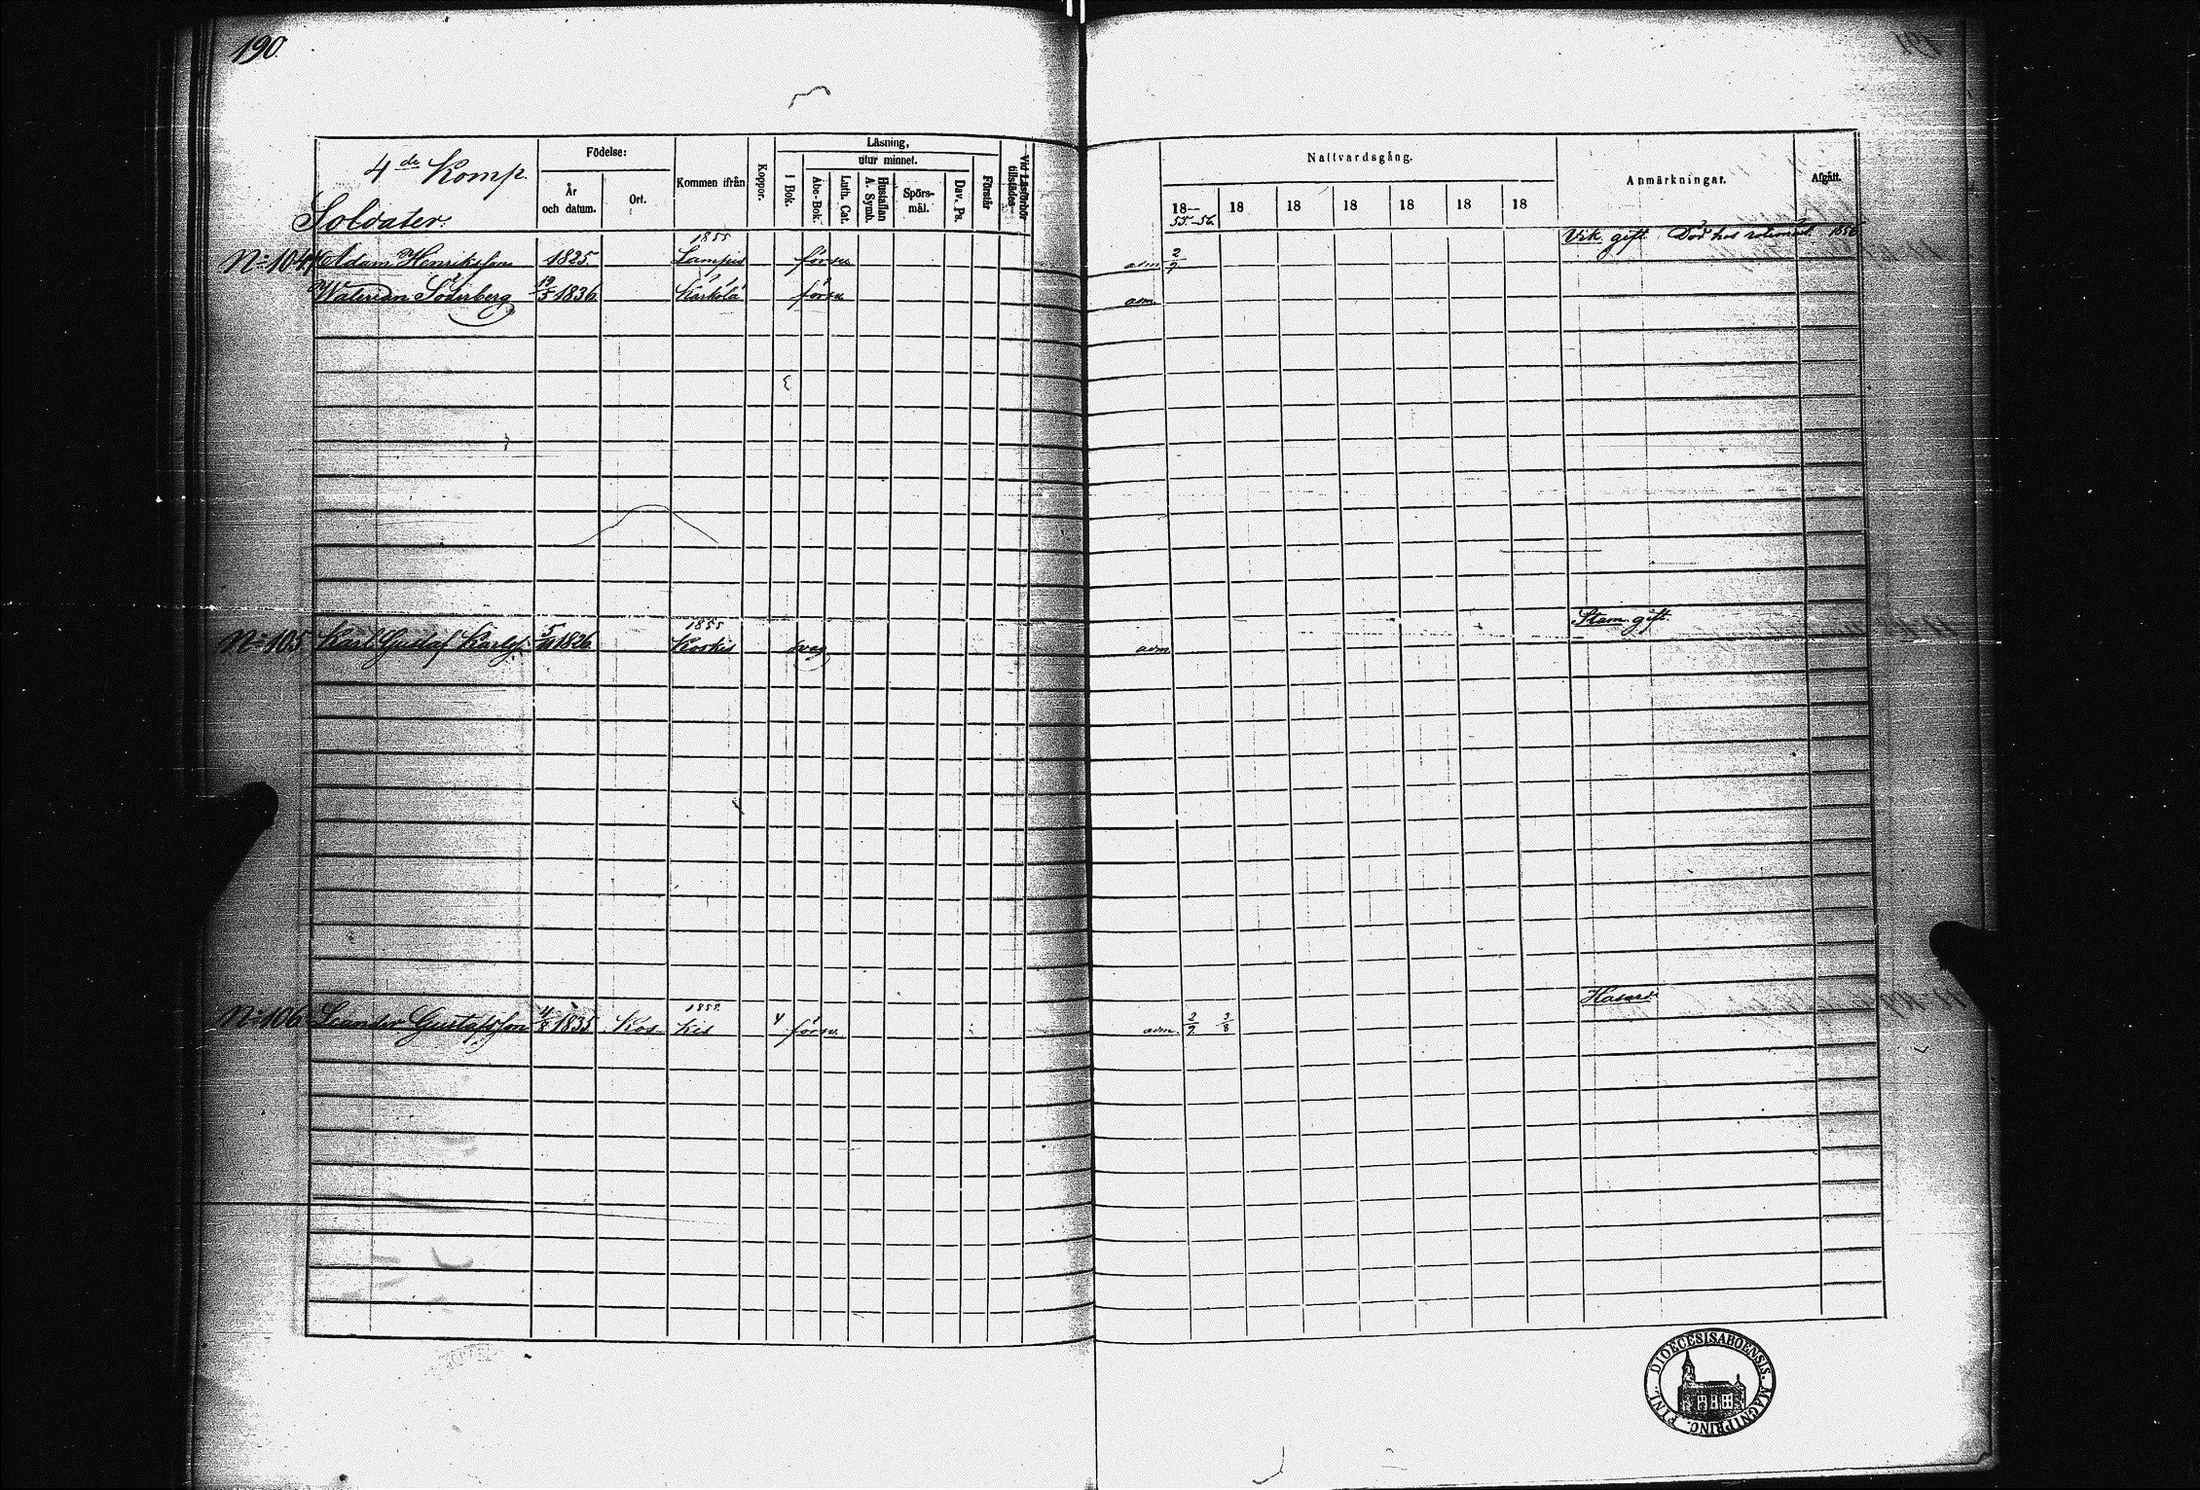 190.
4de Komp.
Soldater.
Födelse:
År och datum.
Ort.
Kommen ifrån
Koppor.
Läsning,
utur minnet.
I Bok.
Abc-Bok.
Luth. Cat.
Hustaflan A. Symb.
Spörs-mål.
Dav. Ps.
Förstår
Vid Läsförhör tillstädes
Nattvardsgång.
18— 18 18 18 18 18 18
55-56
Anmärkningar.
Afgått.
Vik. gift. Död hos 1856
No 104 Adam Henriksson 1825. 1855 Lampis försv. adm 2/9
Walerian Söderberg 1836 Kärkölä försv. adm
Stam. gift.
No 105 Karl Gustaf Karlss. 1826 1855 Koskis svag adm
Hasard
No 106 Leander Gustafsson 4/8 1835 1855. Kos- kis försv. adm. 2/9 3/8
DIOECESIS ABOENSIS. MAGNI PRINC. FINL.